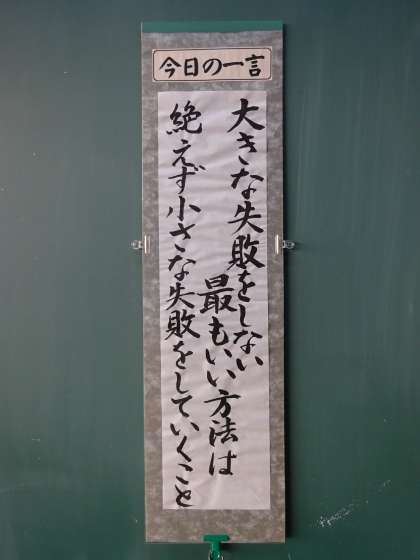 今日の一言
大きな失敗をしない
最もいい方法は
絶えず小さな失敗をしていくこと